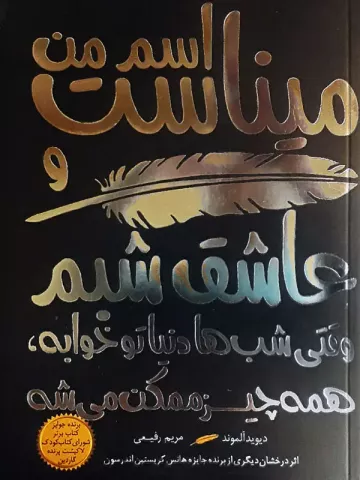 اسم من
میناست
و
عاشق شبم
وقتی شب‌ها دنیا تو خوابه،
همه چیز ممکن می‌شه
دیوید آلموند مریم رفیعی
اثر درخشان دیگری از برنده جایزه هانس کریستین اندرسون
برنده جوایز
کتاب برتر
شورای کتاب کودک
لاکپشت پرنده
گاردین